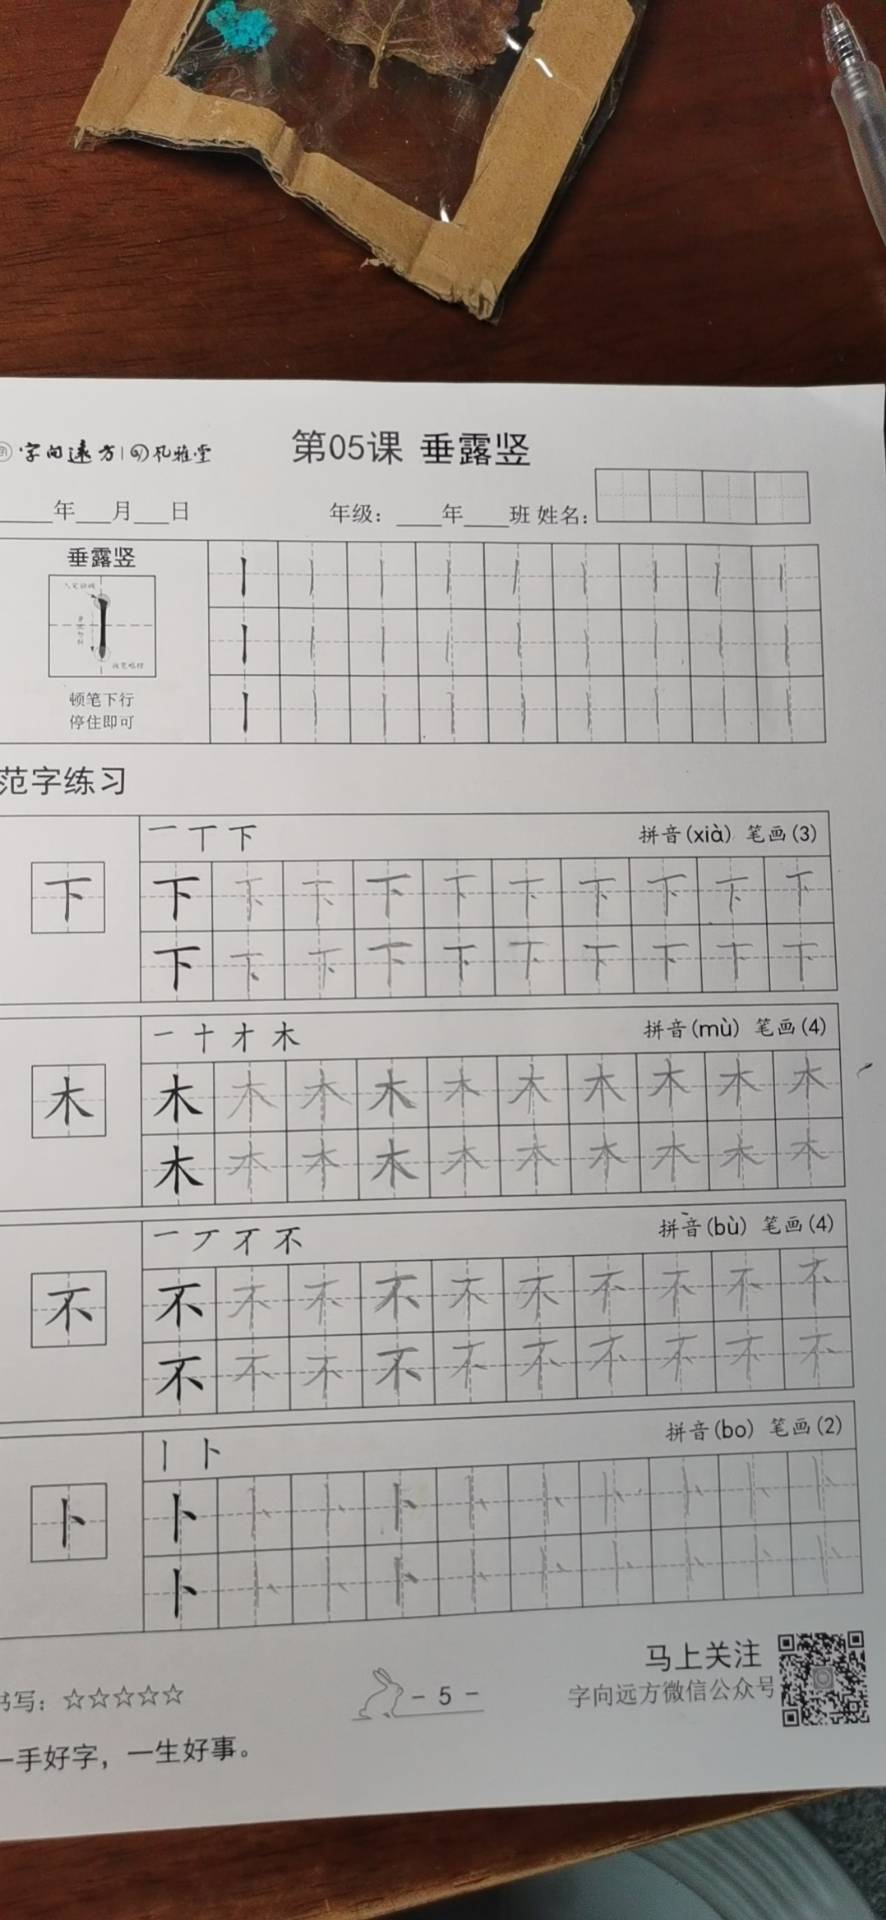 字向远方|风雅堂
第05课 垂露竖
____年___月___日
年级：____年____班 姓名：
垂露竖
顿笔下行
停住即可
范字练习
一 丅 下
拼音(xià) 笔画(3)
下 下 下 下 下 下 下 下 下 下 下
下 下 下 下 下 下 下 下 下 下
一 十 才 木
拼音(mù) 笔画(4)
木 木 木 木 木 木 木 木 木 木 木
木 木 木 木 木 木 木 木 木 木
一 丆 不 不
拼音(bù) 笔画(4)
不 不 不 不 不 不 不 不 不 不 不
不 不 不 不 不 不 不 不 不 不
丨 卜
拼音(bo) 笔画(2)
卜 卜 卜 卜 卜 卜 卜 卜 卜 卜 卜
卜 卜 卜 卜 卜 卜 卜 卜 卜 卜
书写：☆☆☆☆☆
- 5 -
马上关注
字向远方微信公众号
一手好字，一生好事。